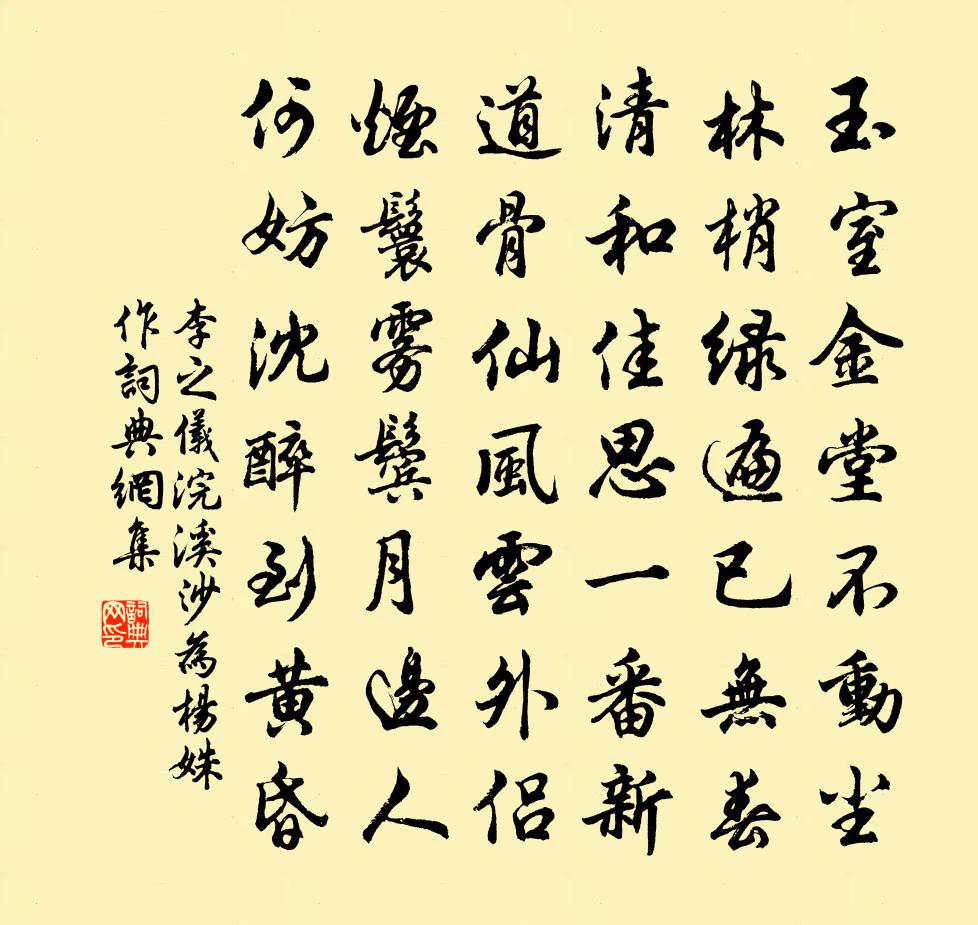 玉室金堂不動尘
林梢緑遍已無春
清和佳思一番新
道骨仙風雲外侣
煙鬟雾鬓月邊人
何妨沈醉到黄昏
李之儀浣溪沙為楊姝
作詞典網集
詞典网印